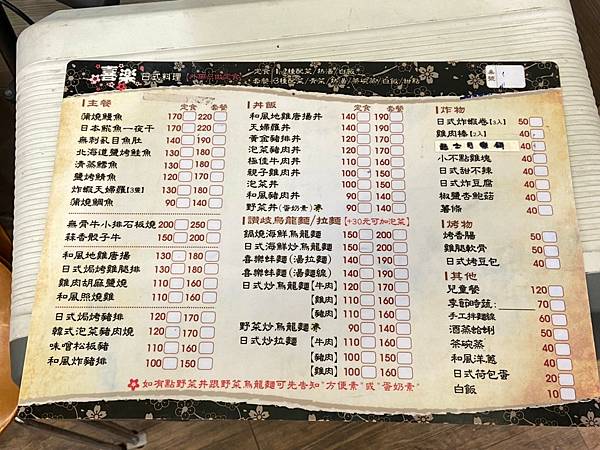 喜樂 日式料理
定食:2種配菜/熱湯/白飯
套餐:3種配菜/青菜/熱湯/茶碗蒸/白飯/甜點
桌號
主餐 定食 套餐
蒲燒鰻魚 170 220
日本鯱魚一夜干 170 220
無刺虱目魚肚 140 190
北海道鹽烤鮭魚 130 180
清蒸鱈魚 130 180
鹽烤鯖魚 110 160
炸蝦天婦羅(3隻) 130 180
蒲燒鯛魚 90 140
無骨牛小排石板燒 200 250
蒜香骰子牛 150 200
和風地雞唐揚 130 180
日式焗烤雞腿排 130 180
雞肉胡麻鹽燒 110 160
和風照燒雞 110 160
日式焗烤豬排 120 170
韓式泡菜豬肉燒 120 170
味噌松板豬 110 160
和風炸豬排 100 150
丼飯 定食 套餐
和風地雞唐揚丼 140 190
天婦羅丼 140 190
黃金豬排丼 120 170
泡菜豬肉丼 110 160
極佳牛肉丼 100 150
親子雞肉丼 100 150
泡菜丼 100 150
和風豬肉丼 90 140
野菜丼(蛋奶素) 90 140
讚岐烏龍麵/拉麵 [+30元可加泡菜]
鍋燒海鮮烏龍麵 150 200
日式海鮮炒烏龍麵 150 200
喜樂蚌麵(湯拉麵) 130 180
喜樂蚌麵(湯麵線) 130 180
日式炒烏龍麵[牛肉] 110 160
[雞肉] 110 160
[豬肉] 110 160
野菜炒烏龍麵 90 140
日式炒拉麵 [牛肉] 100 150
[豬肉] 100 150
[雞肉] 100 150
炸物
日式炸蝦卷(3入) 50
雞肉棒(2入) 40
40
小不點雞塊 40
日式甜不辣 40
日式炸豆腐 40
椒鹽杏鮑菇 40
薯條 40
烤物
烤香腸 50
雞腿軟骨 50
日式烤豆包 40
其他
兒童餐 120
季節時蔬: 70
手工拌麵線 60
酒蒸蛤蜊 50
茶碗蒸 40
和風洋蔥 40
日式荷包蛋 20
白飯 10
如有點野菜丼跟野菜烏龍麵可先告知"方便素"或"蛋奶素"